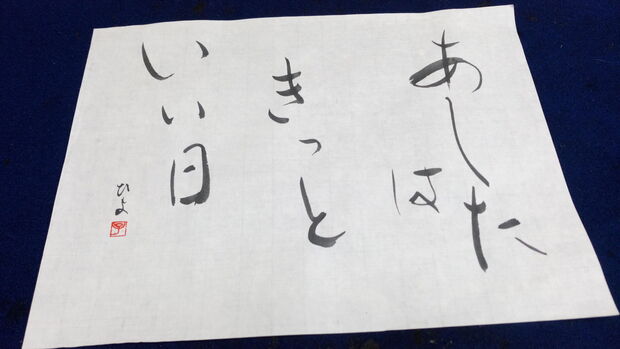 あした
は
きっと
いい日
ひよ